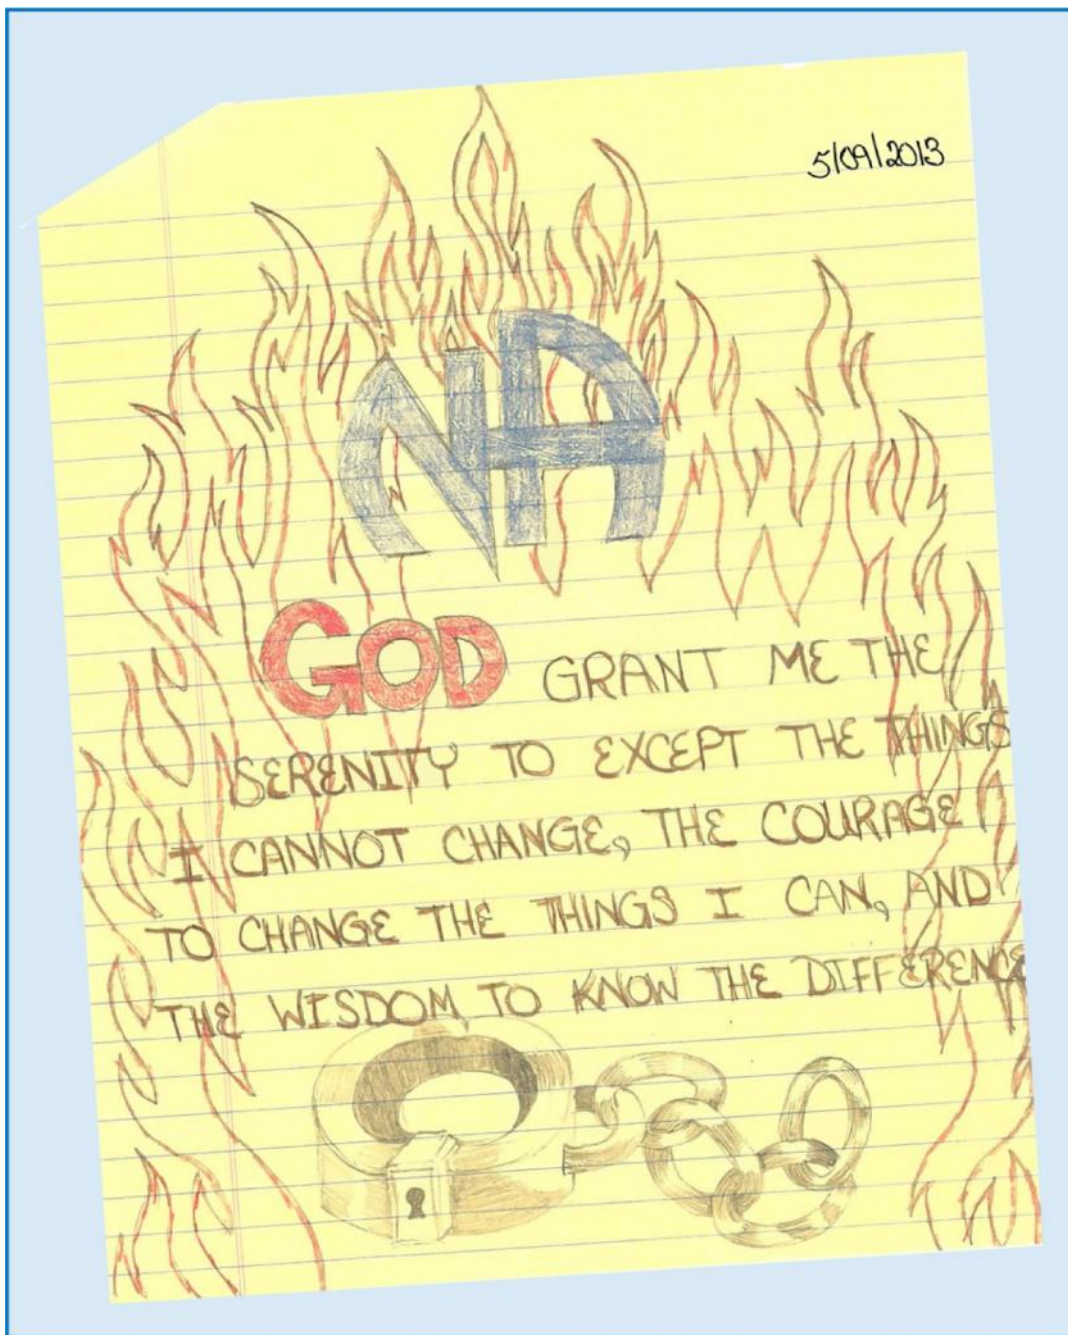 5/09/2013
NA
GOD GRANT ME THE
SERENITY TO EXCEPT THE THINGS
I CANNOT CHANGE, THE COURAGE
TO CHANGE THE THINGS I CAN, AND
THE WISDOM TO KNOW THE DIFFERENCE